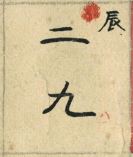 辰
二九